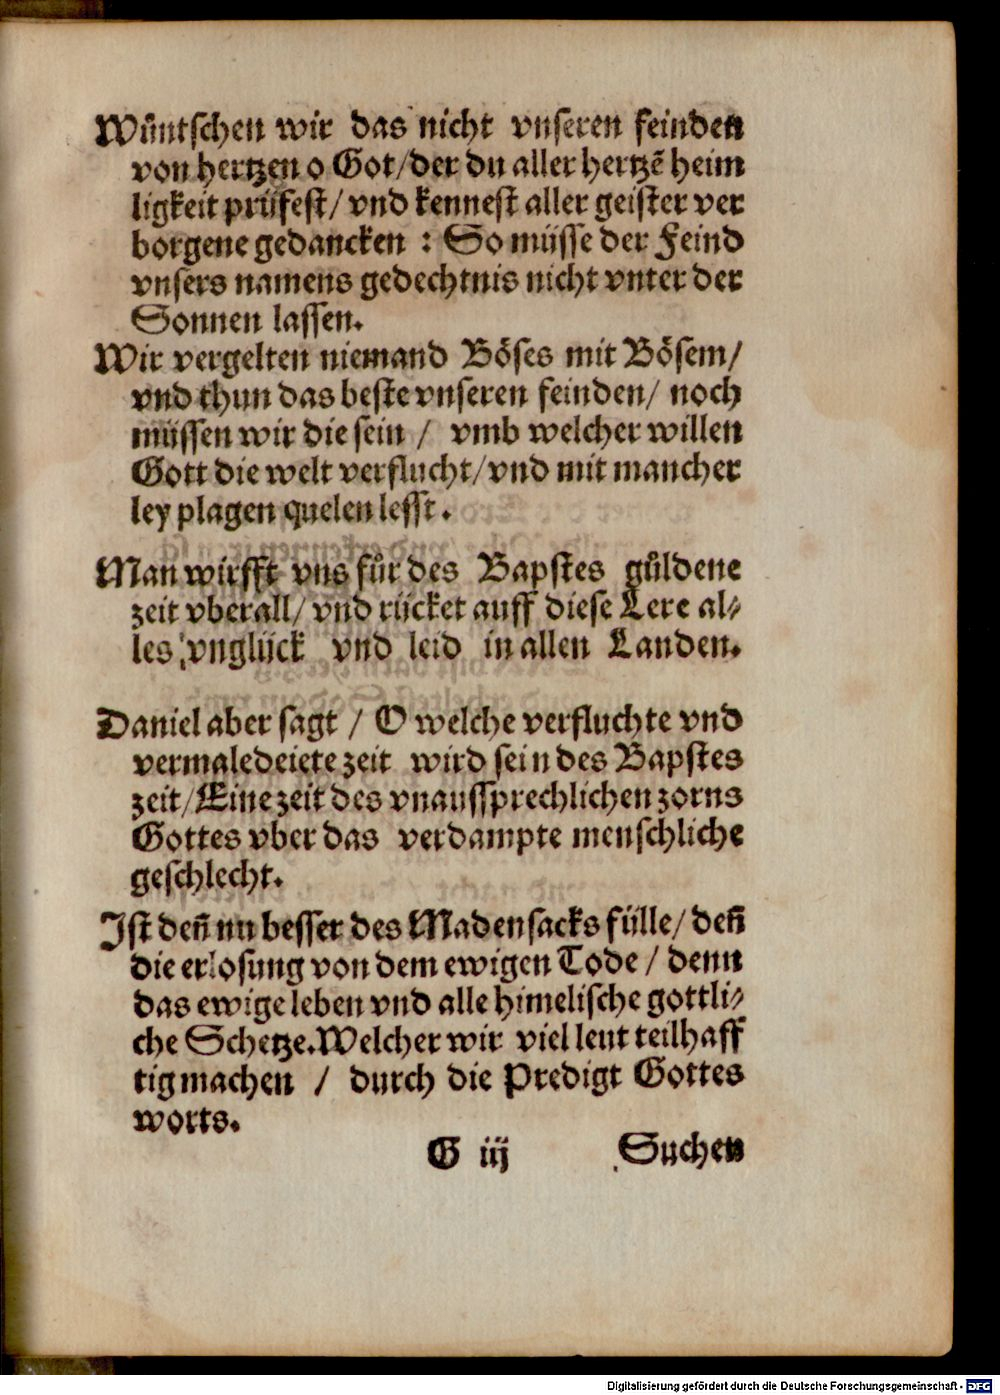 Wůntschen wir das nicht vnseren feinden
von hertzen o Got/der du aller hertzẽ heim
ligkeit prüfest/ vnd kennest aller geister ver
borgene gedancken : So müsse der Feind
vnsers namens gedechtnis nicht vnter der
Sonnen lassen.
Wir vergelten niemand Böses mit Bösem/
vnd thun das beste vnseren feinden/ noch
müssen wir die sein / vmb welcher willen
Gott die welt verflucht/vnd mit mancher
ley plagen quelen lesst.
Man wirfft vns für des Bapstes gůldene
zeit vberall/ vnd rücket auff diese Lere al⸗
les vnglück vnd leid in allen Landen.
Daniel aber sagt / O welche verfluchte vnd
vermaledeiete zeit wird sein des Bapstes
zeit/Eine zeit des vnaussprechlichen zorns
Gottes vber das verdampte menschliche
geschlecht.
Ist deñ nu besser des Madensacks fülle/ deñ
die erlosung von dem ewigen Tode / denn
das ewige leben vnd alle himelische gottli⸗
che Schetze.Welcher wir viel leut teilhaff
tig machen / durch die Predigt Gottes
worts.
G iij Suchen
Digitalisierung gefördert durch die Deutsche Forschungsgemeinschaft - DFG